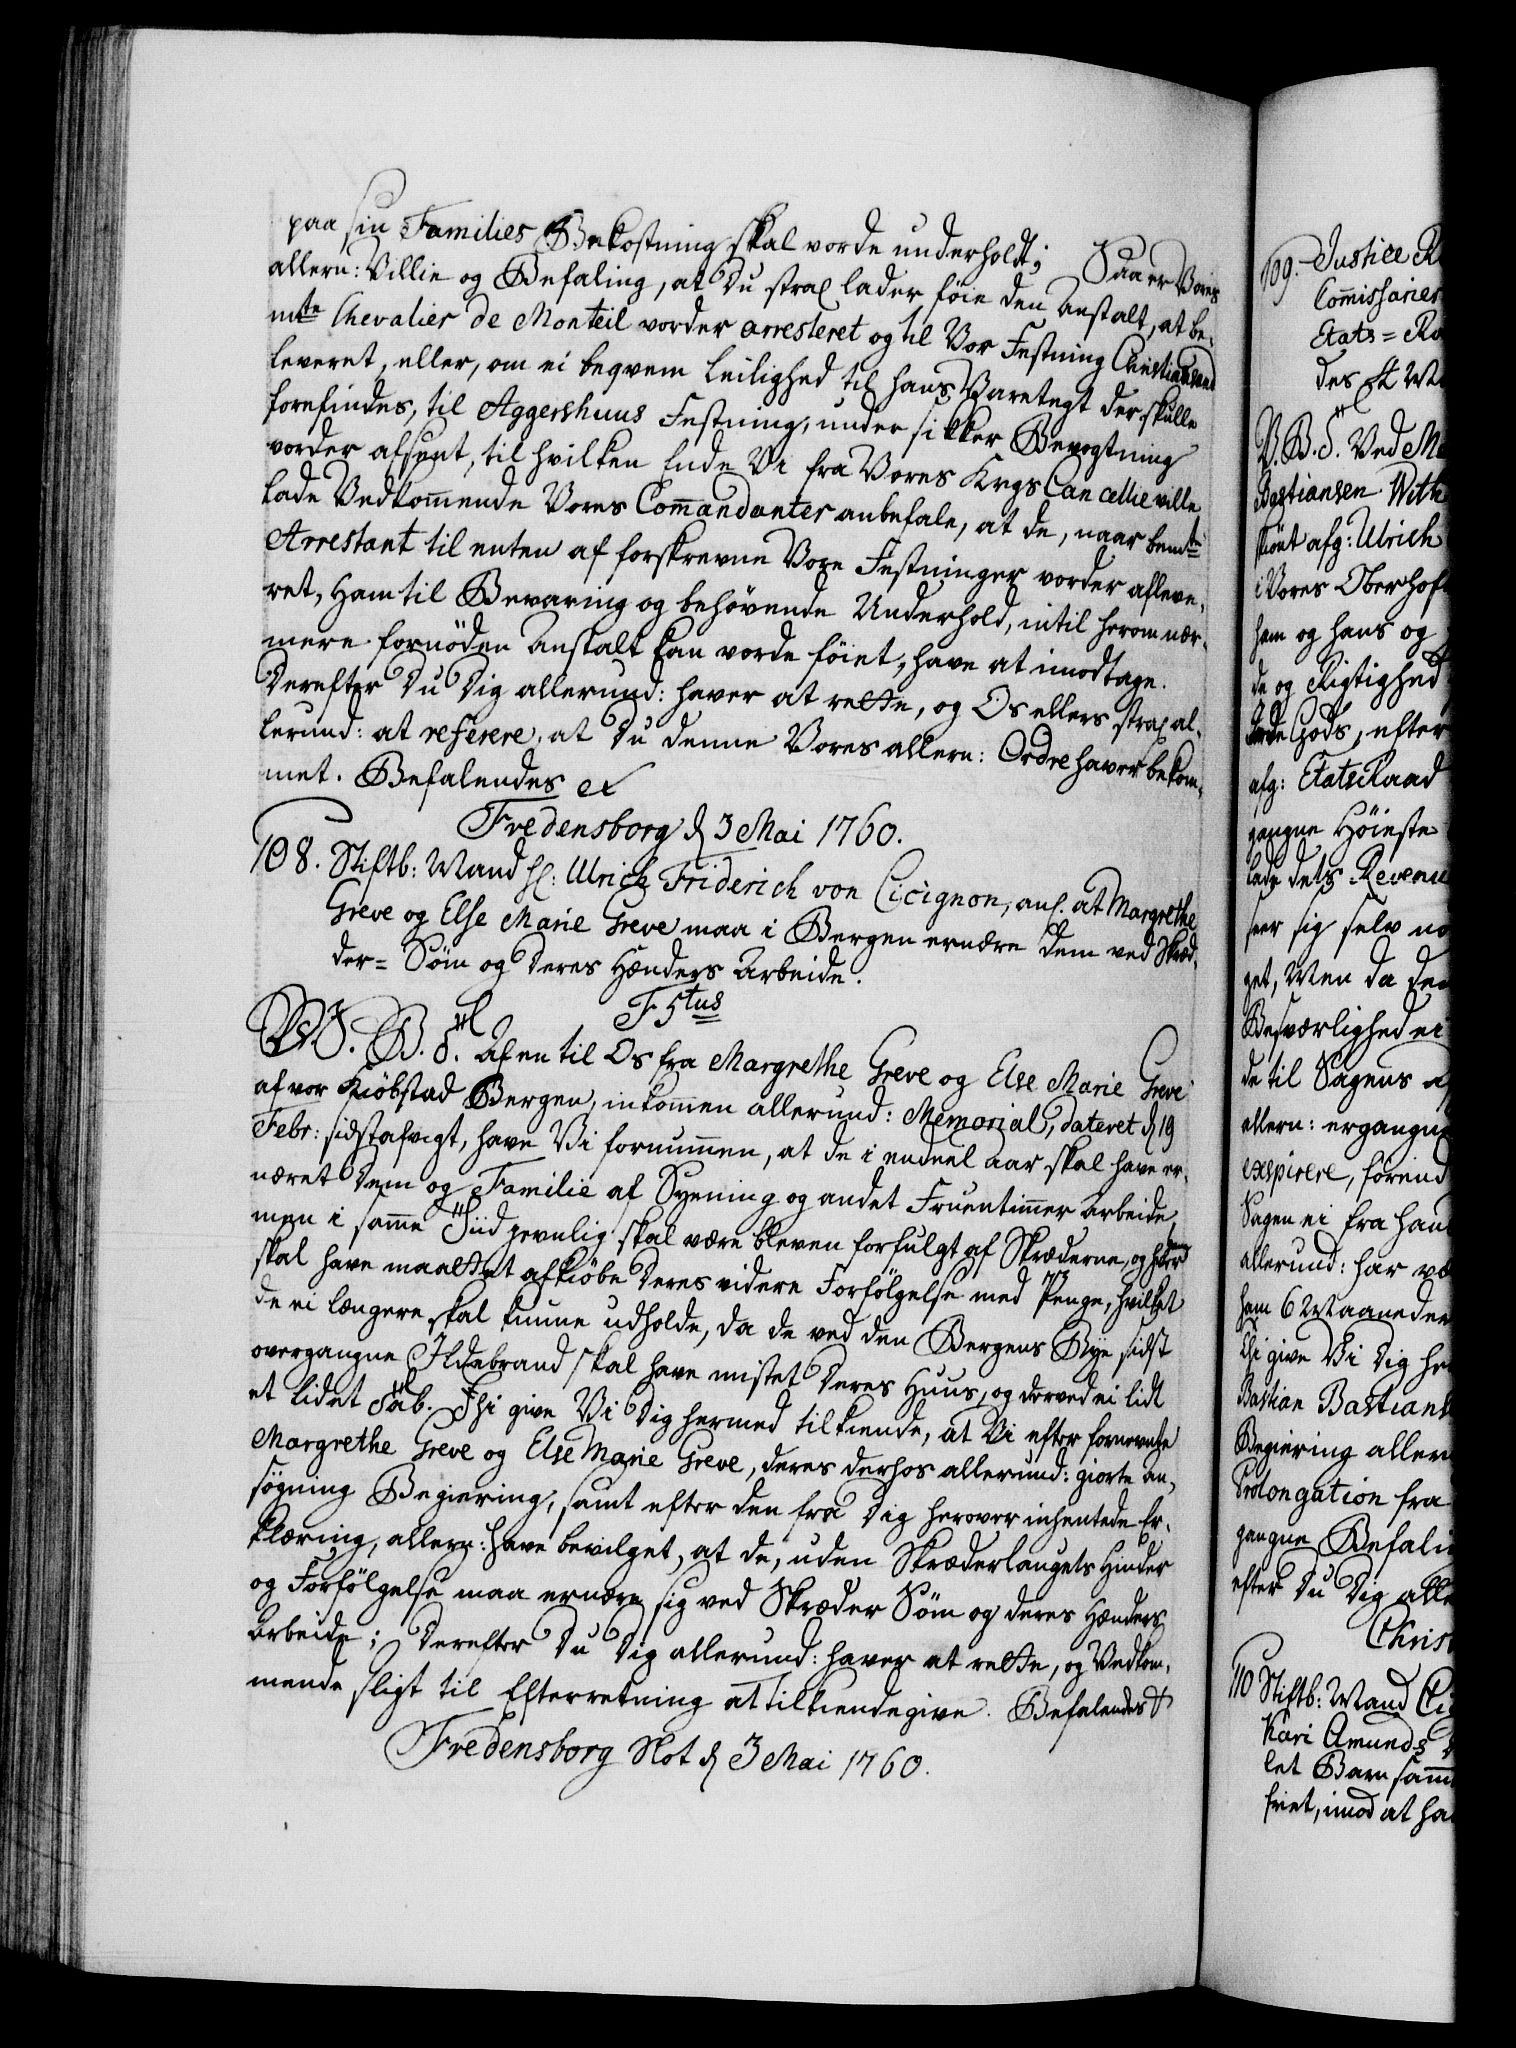 paa sin Families Bekostning skal vorde underholdt; Saa er Vores
allern: Villie og Befaling, at Du strax lader föie den Anstalt, at be-
mte Chevalier de Monteil vorder arresteret og til Vor Festning Christiansand
leveret, eller, om ei beqvem Leilighed til hans Varetegt der skulle
forefindes, til Aggershuus Festning, under sikker Bevogtning
vorder afsent, til hvilken Ende Vi fra Vores Krgs Cancellie ville
lade Vedkommende Vores Commandanter anbefale, at de, naar bemte
Arrestant til enten af forskrevne Vore Festninger vorder afleve-
ret, Ham til Bevaring og behövende Underhold, intil herom nær-
mere fornöden Anstalt kan vorde föiet, have at imodtage.
Derefter Du Dig allerund: haver at rette, og Os ellers strax al-
lerund: at referere, at Du denne Vores allern: Ordre haver bekom-
met. Befalendes &
Fredensborg d 3 Mai 1760.
108. Stiftb: Mand Hl: Ulrich Friderich von Cicignon, anl. at Margrethe
Greve og Else Marie Greve maa i Bergen ernære dem ved Skræd-
der= Söm og Deres Hænders Arbeide.
F 5tus
V. G. B. T. Af en til Os fra Margrethe Greve og Else Marie Greve
af vor Kiöbstad Bergen, inkommen allerund: Memorial, dateret d 19
Febr: sidstafvigt, have Vi fornummen, at de i endeel Aar skal have er-
næret Dem og Familie af Syening og andet Fruentimmer Arbeide,
men i samme Tiid jevnlig skal være bleven forfulgt af Skræderne, og
skal have maattet afkiöbe Deres videre Forfölgelse med Penge, hvilket
de ei længere skal kunne udholde, da de ved den Bergens Bye sidst
overgangne Ildebrand skal have mistet Deres Huus, og derved ei lidt
et lidet Tab. Thi give Vi Dig hermed tilkiende, at Vi efter fornevnte
Margrethe Greve og Else Marie Greve, deres derhos allerund: giorte An-
søgning Begiering, samt efter den fra Dig herover inhentede Er-
klæring, allern: have bevilget, at de, uden Skræderlaugets Hinder
og Forfölgelse maa ernære sig ved Skræder Söm og deres Hænders
Arbeide; Derefter Du Dig allerund: haver at rette, og Vedkom-
mende sligt til Efterretning at tilkiendegive. Befalendes &
Fredensborg Slot d 3 Mai 1760.
109. Justice
Commissarier
Etats=
des
V. G. B. T. Ved
Bastiansen With
skiönt afg: Ulrich
i Vores Oberhof
ham og hans og
de og Rigtighed
Gods, efter
afg: EtatsRaad
gangne Höieste
lade dets Revenue
seer sig selv
get, Men da den
Besværlighed ei
de til Sagens
allern: ergangne
expirere, forend
Sagen ei fra
allerund: har
ham 6 Maaneder
Thi give Vi Dig
Bastian Bastians
Begiering allern
Prolongation fra
gangne Befali
efter Du Dig alle
Christ
110 Stiftb: Mand
Kari Amunds
let Barn
friet, imod at